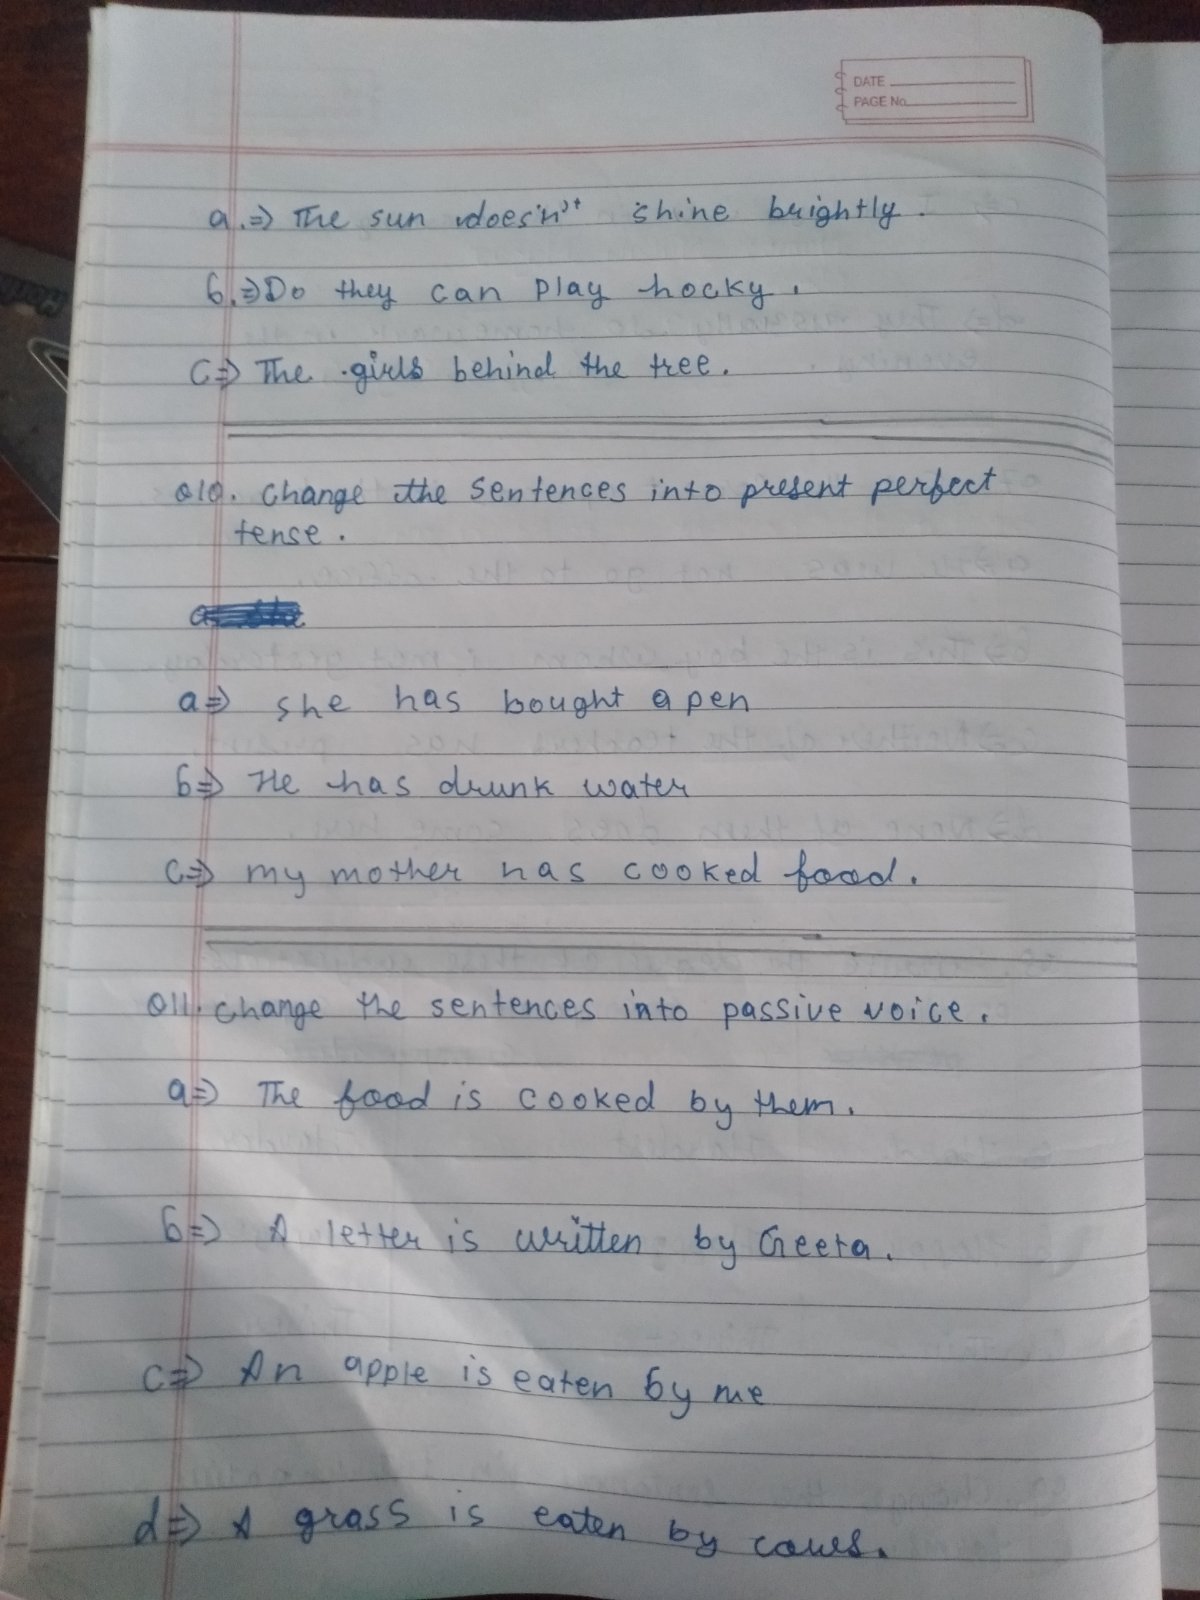 DATE
PAGE No.
a.⇒ The sun does'n't shine brightly.
b.⇒ Do they can play hocky.
c⇒ The girls behind the tree.
Q10. change the sentences into present perfect
tense.
a⇒ she has bought a pen
b⇒ He has drunk water
c⇒ my mother has cooked food.
Q11. change the sentences into passive voice.
a⇒ The food is cooked by them.
b⇒ A letter is written by Geeta.
c⇒ An apple is eaten by me
d⇒ A grass is eaten by cows.